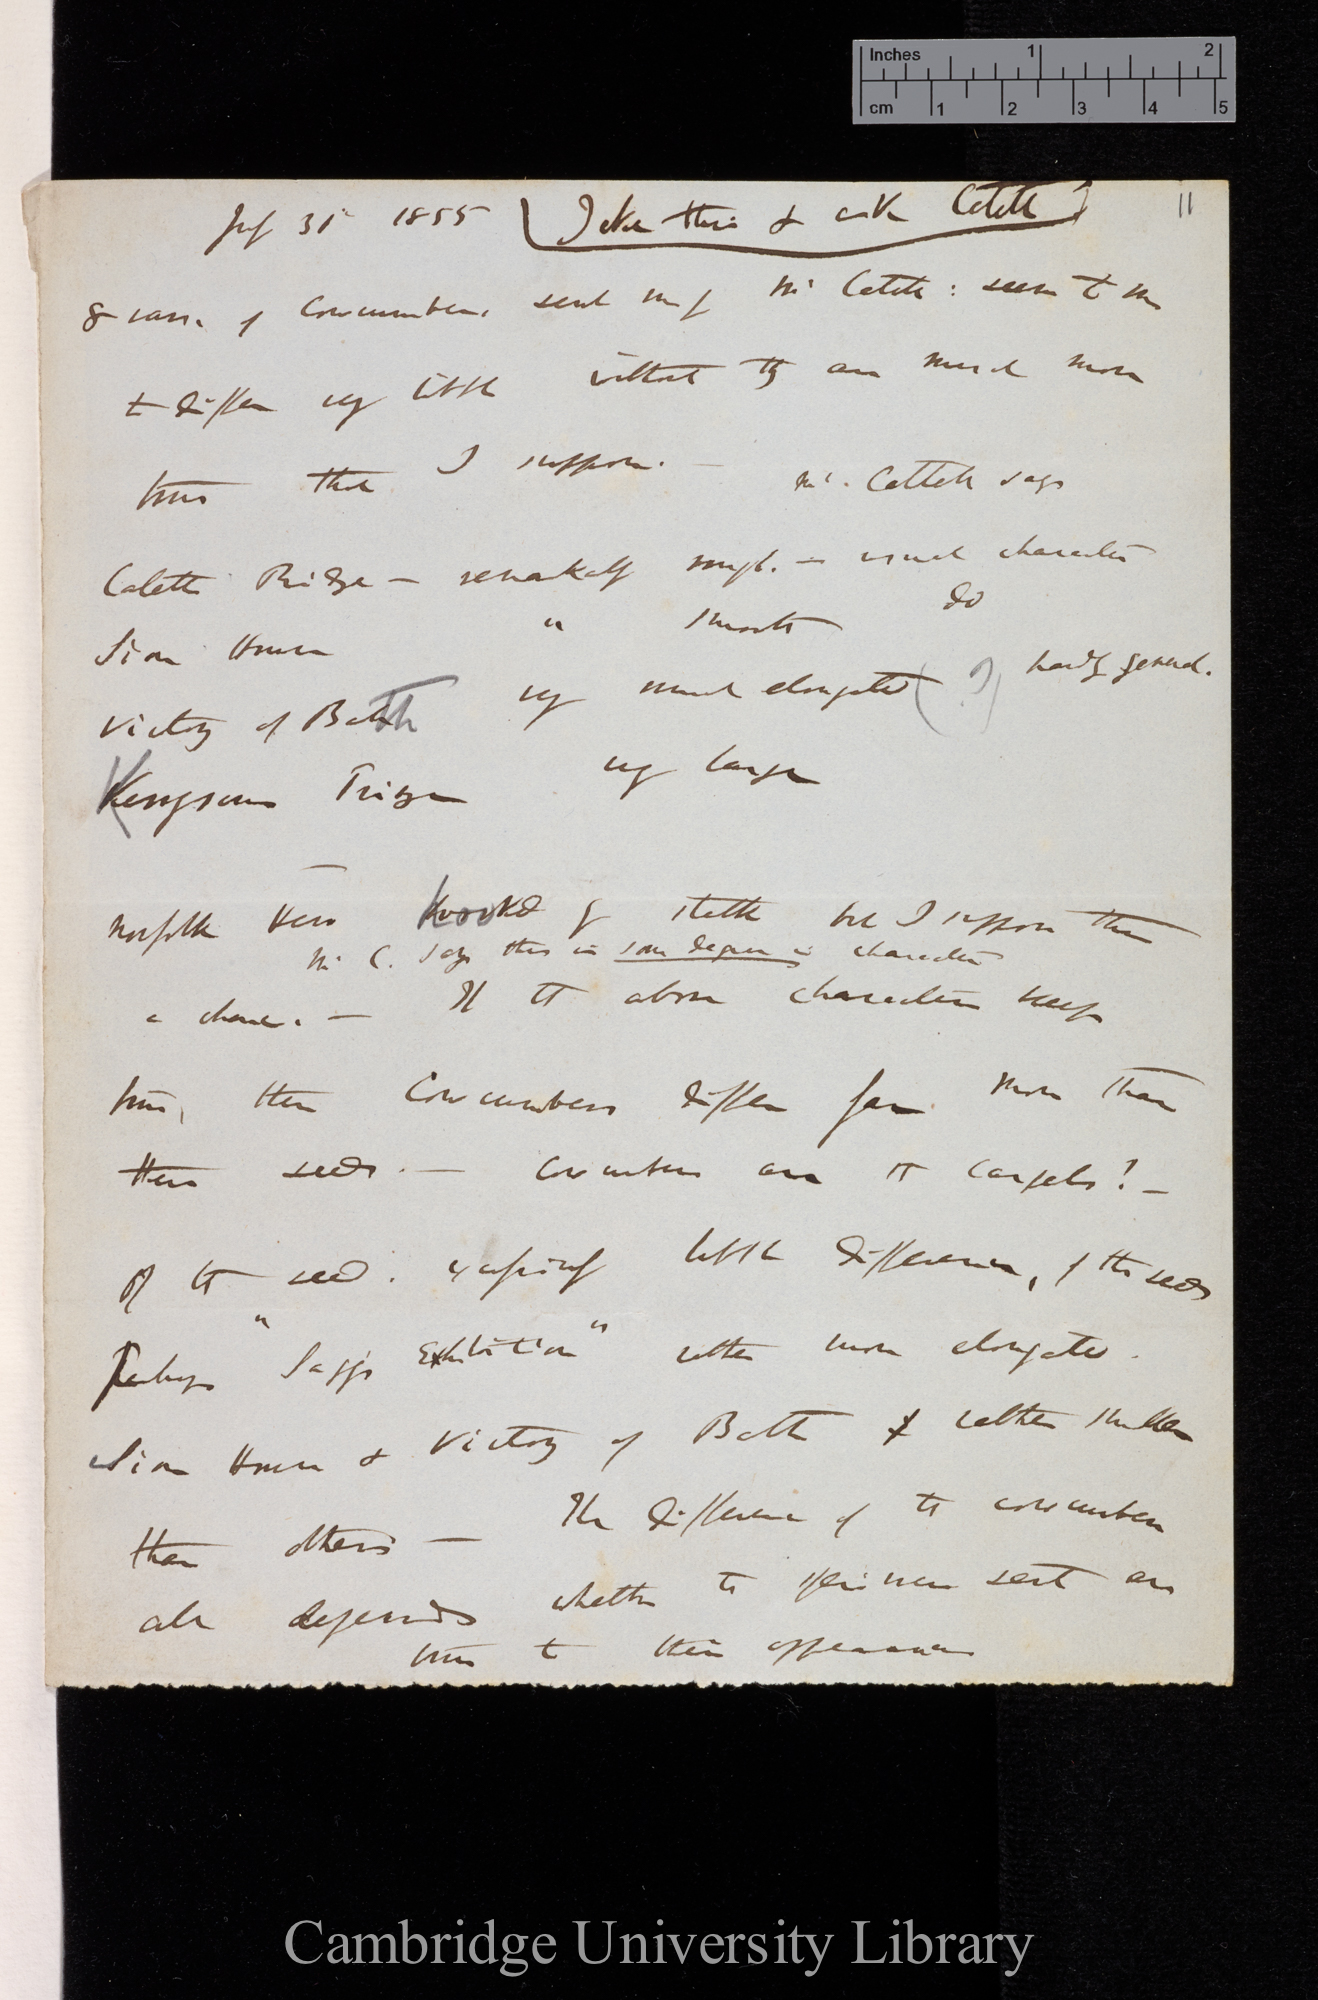 Inches 1 2
cm 1 2 3 4 5
11
July 31 1855 [Take this & ask Cattell]
8 vars. of Cowcumbers sent me by Mr Cattell: seem to me
to differ very little without they are much more
true than I suppose. — Mr. Cattell says
Cattells Ridge — remarkably rough. — usual character
Sion House " smooth do
Victory of Bath very much elongated (?) hardly general.
Kenyson Prize very large
Norfolk Hero Krooked by stalk but I suppose this
Mr C. says this in some degree is character
a chance. — If the above characters keep
true, then Cowcumbers differ far more than
their seeds. — Cowcumbers are the largest! —
Of the seed. surprisingly little difference, of the seeds
Perhaps " Exhibition" rather more elongated.
Sion House & Victory of Bath rather smaller
than others — The difference of the cowcumbers
all depends whether the specimens sent are
true to their appearances
Cambridge University Library